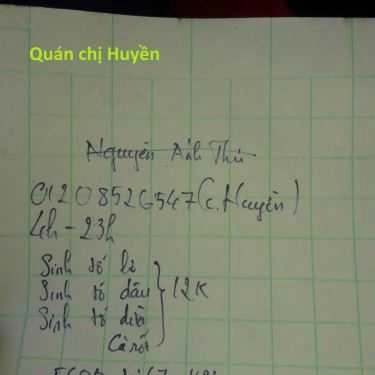 Quán chị Huyền
Nguyễn Ánh Thư
01208526547 (c. Huyền)
4h - 23h
Sinh tố lê
Sinh tố dâu
Sinh tố dừa
Cà rốt
12K